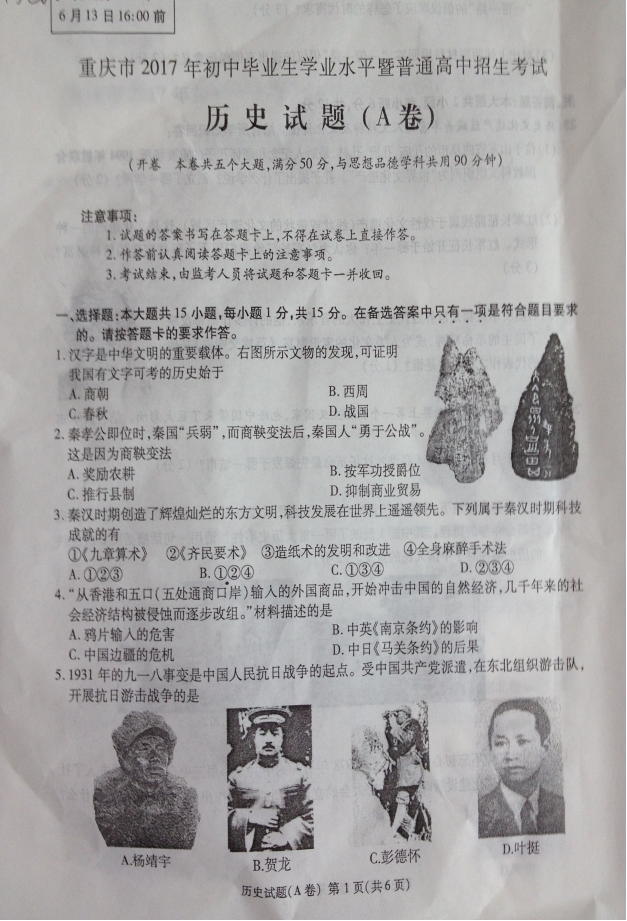 6月13日16:00前
重庆市2017年初中毕业生学业水平暨普通高中招生考试
历史试题(A卷)
(开卷 本卷共五个大题,满分50分,与思想品德学科共用90分钟)
注意事项:
1.试题的答案书写在答题卡上,不得在试卷上直接作答。
2.作答前认真阅读答题卡上的注意事项。
3.考试结束,由监考人员将试题和答题卡一并收回。
一、选择题:本大题共15小题,每小题1分,共15分。在备选答案中只有一项是符合题目要求
的。请按答题卡的要求作答。
1.汉字是中华文明的重要载体。右图所示文物的发现,可证明
我国有文字可考的历史始于
A.商朝 B.西周
C.春秋 D.战国
2.秦孝公即位时,秦国“兵弱”,而商鞅变法后,秦国人“勇于公战”。
这是因为商鞅变法
A.奖励农耕 B.按军功授爵位
C.推行县制 D.抑制商业贸易
3.秦汉时期创造了辉煌灿烂的东方文明,科技发展在世界上遥遥领先。下列属于秦汉时期科技
成就的有
①《九章算术》 ②《齐民要术》 ③造纸术的发明和改进 ④全身麻醉手术法
A.①②③ B.①②④ C.①③④ D.②③④
4.“从香港和五口(五处通商口岸)输入的外国商品,开始冲击中国的自然经济,几千年来的社
会经济结构被侵蚀而逐步改组。”材料描述的是
A.鸦片输入的危害 B.中英《南京条约》的影响
C.中国边疆的危机 D.中日《马关条约》的后果
5.1931年的九一八事变是中国人民抗日战争的起点。受中国共产党派遣,在东北组织游击队,
开展抗日游击战争的是
A.杨靖宇 B.贺龙 C.彭德怀 D.叶挺
历史试题(A卷) 第1页(共6页)